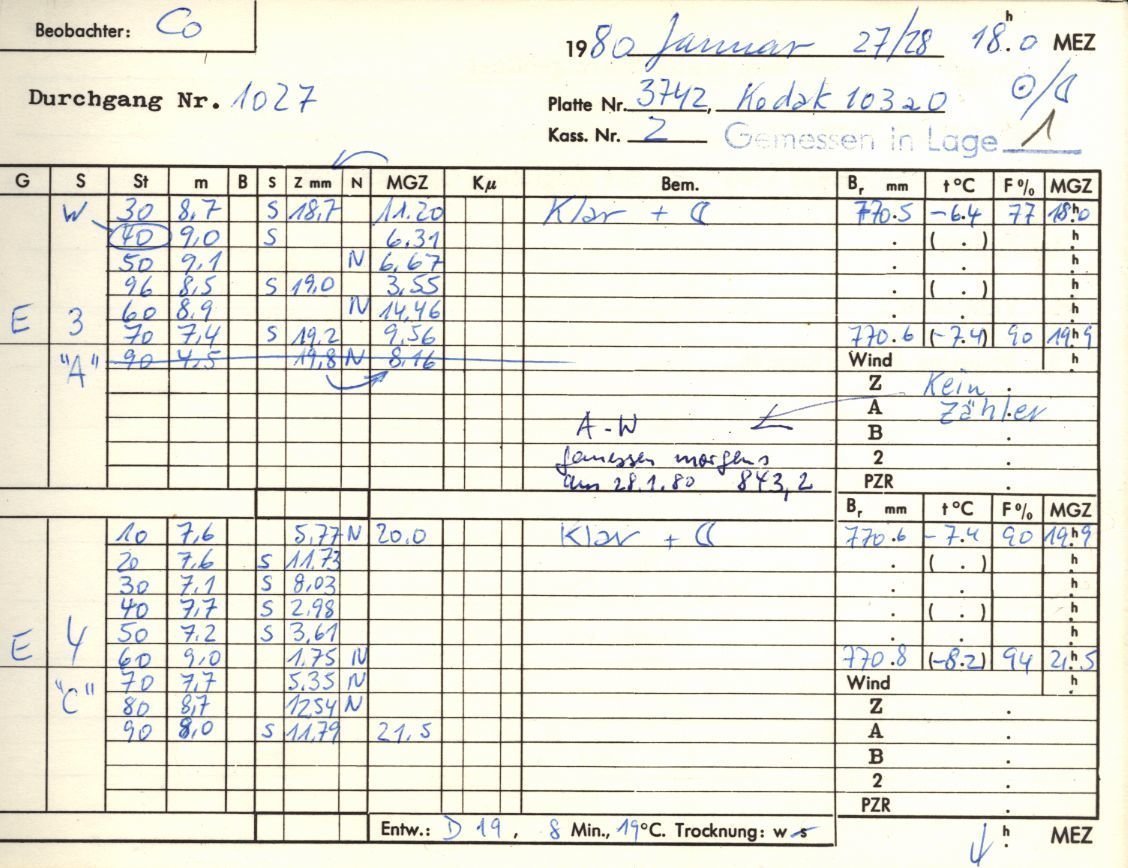 Beobachter: Co
1980 Januar 27/28 18.h0 MEZ
Durchgang Nr. 1027
Platte Nr. 3742, Kodak 103aO ⊙/☾
Kass. Nr. 2 Gemessen in Lage 1
G S St m B S Z mm N MGZ Kμ Bem. Br mm t°C F% MGZ
W 30 8,7 S 18,7 11.20 Klar + ☾ 770.5 -6.4 77 18h0
40 9,0 S 6.31 . ( . ) h
50 9,1 N 6,67 . . h
96 8,5 S 19,0 3,55 . ( . ) h
60 8,9 N 14,46 . . h
E 3 70 7,4 S 19,2 9,56 770.6 (-7.4) 90 19h9
"A" 90 4,5 19,8 N 8,16 Wind h
Z Kein .
A Zähler
A-W B .
gemessen morgens 2 .
am 28.1.80 843,2 PZR .
Br mm t°C F% MGZ
10 7,6 5,77 N 20,0 Klar + ☾ 770.6 -7.4 90 19h9
20 7,6 S 11,73 . ( . ) h
30 7,1 S 8,03 . . h
40 7,7 S 2,98 . ( . ) h
50 7,2 S 3,61 . . h
E 4 60 9,0 1,75 N 770.8 (-8.2) 94 21h5
"C" 70 7,7 5,35 N Wind h
80 8,7 12,54 N Z .
90 8,0 S 11,79 21,5 A .
B .
2 .
PZR .
Entw.: D 19, 8 Min., 19°C. Trocknung: w s h MEZ